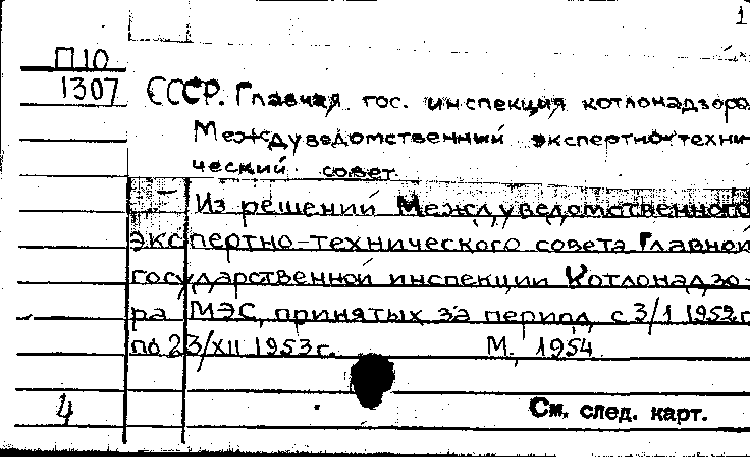 1
П10
1307
СССР. Главная гос. инспекция котлонадзора
Междуведомственный экспертно-техни-
ческий совет
Из решений Междуведомственного
экспертно-технического совета Главной
государственной инспекции Котлонадзо-
ра МЭС, принятых за период с 3/I 1952г
по 23/XII 1953г. М., 1954
4
См. след. карт.